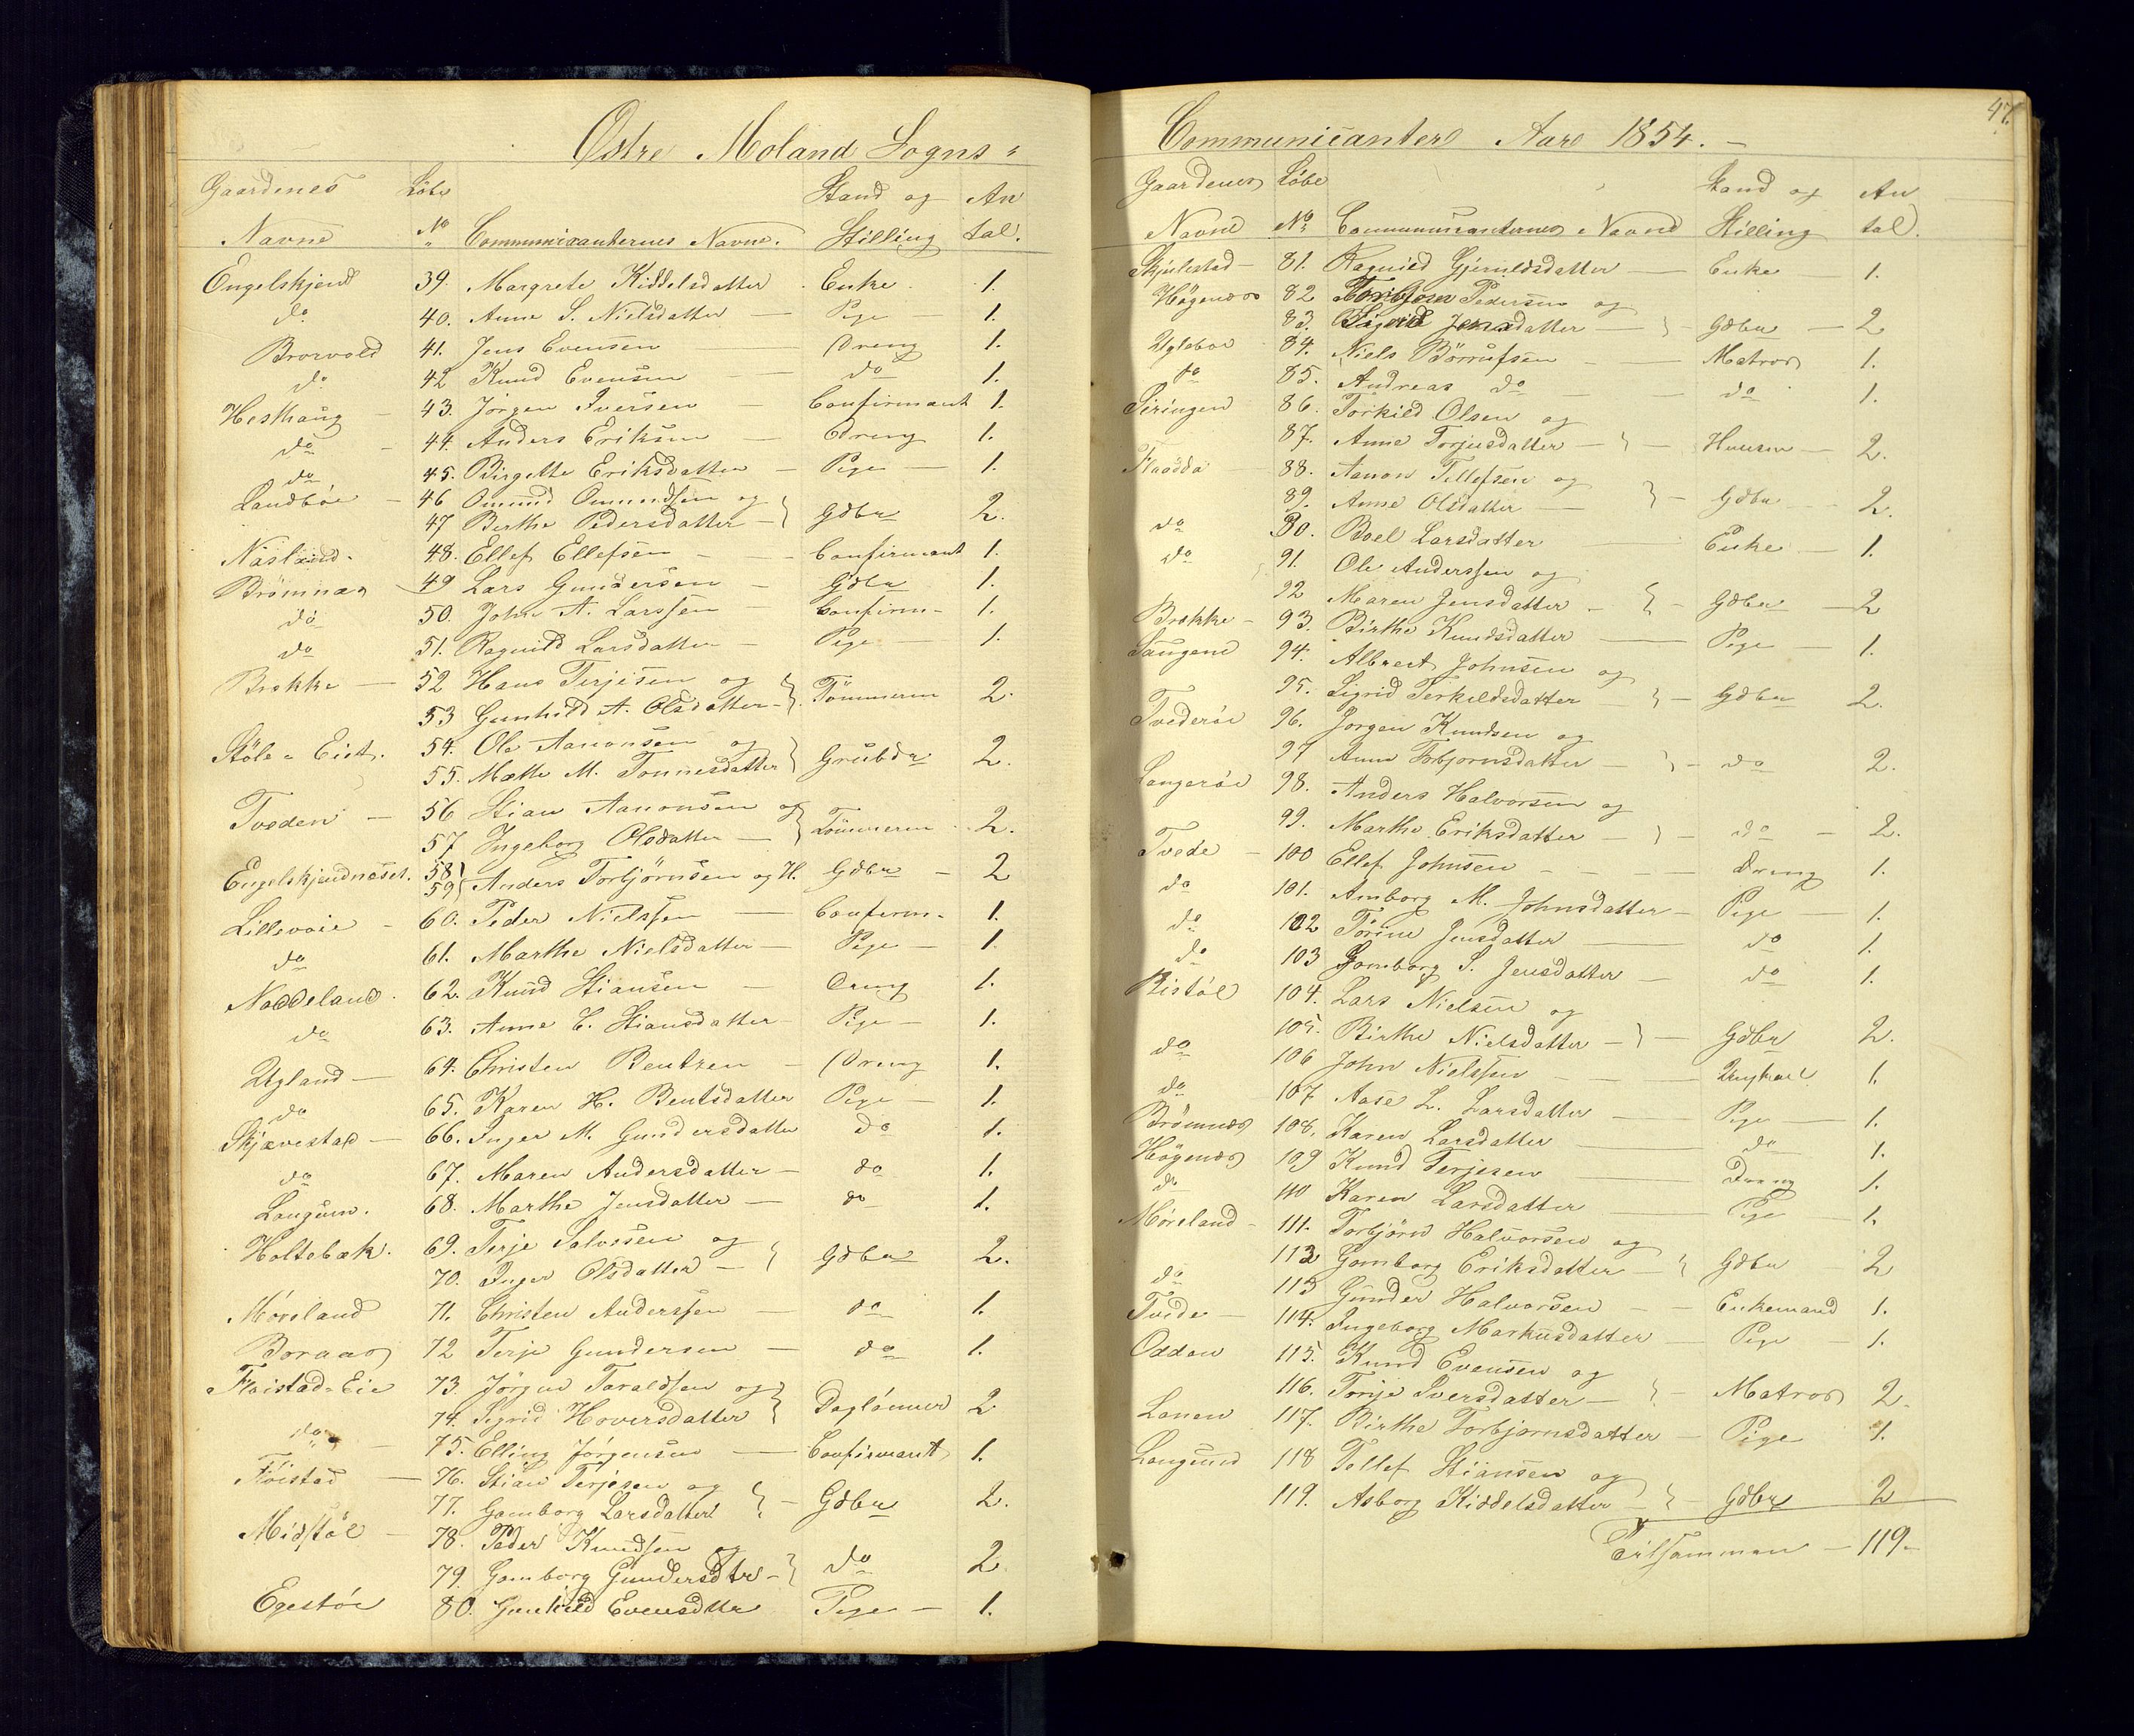 Østre Moland Sogns =
Gaardenes Løbe Stand og An
Navne No Communicanternes Navne. Stilling tal.
Engelskjend 39. Margrete Kiddelsdatter Enke 1.
do 40. Anne S. Nielsdatter — Pige 1.
Brorvold 41. Jens Evensen Dreng 1.
do 42 Knud Evensen — do 1.
Hesthaug 43. Jørgen Iversen — Confirmant 1.
do 44. Anders Eriksen — Dreng 1.
do 45. Birgitte Eriksdatter — Pige — 1.
Landbøe — 46 Omund Omundsen og
47 Berthe Pedersdatter — } Gdbr 2.
Næsland. 48. Ellef Ellefsen — Confirmant 1.
Brømnæs 49 Lars Gundersen — Gdbr 1.
do 50. John A. Larssen — Confirm. 1.
do 51. Ragnild Larsdatter — Pige — 1.
Brekke — 52 Hans Terjesen og
53 Gunhild A. Olsdatter } Tømmerm 2.
Støle = Eiet. 54. Ole Aanonsen og
55. Mætte M. Tønnesdatter } Grubdr 2.
Tveden — 56 Stian Aanonsen og
57 Ingeborg Olsdatter — } Tømmerm 2.
Engelskjendnæset. 58
59 } Anders Torbjørnsen og H. Gdbr — 2
Lillevaie — 60. Peder Nielssen — Confirm. 1.
do 61. Marthe Nielsdatter — Pige — 1
Næddeland. 62. Knud Stiansen — Dreng 1.
do 63. Anne C. Stiansdatter Pige — 1.
Ugland — 64. Christen Bentzen — Dreng 1.
do 65. Karen H. Bentsdatter Pige — 1.
Skjævestad — 66. Inger M. Gundersdatter do 1.
do 67. Maren Andersdatter — do 1.
Langum. 68. Marthe Jensdatter — do 1.
Holtebæk. 69. Terje Salvesen og
70. Inger Olsdatter — } Gdbr 2.
Møreland 71. Christen Anderssen — do 1.
Boraas 72 Terje Gundersen — do 1.
Fløistad = Eie 73. Jørgen Taraldsen og
74. Sigrid Hoversdatter } Daglønner 2
do — 75. Elling Jørgensen — Confirmant 1.
Føistad — 76. Stian Terjesen og
77. Gomborg Larsdatter } — Gdbr 2.
Midstøl — 78. Peder Knudsen og
79. Gomborg Gundersdtr — } do 2
Egestøe 80. Gunhild Evensdtr Pige — 1.
47.
Communicanter Aar 1854. —
Gaardenes Løbe Stand og An
Navne No Communicanternes Navne Stilling tal.
Skjulestad — 81. Ragnild Gjeruldsdatter — Enke 1.
Høgenæs 82 Torbjørn Pedersen og
83. Sigrid Jensdatter — } — Gdbr — 2
Ugleboe 84. Niels Børrufsen — Matros 1.
do 85. Andreas do — do 1.
Piringen 86. Torkild Olsen og
87. Anne Torjusdatter — } — Huusm — 2.
Flaødda 88. Aanon Tellefsen og
89. Anne Olsdatter — } — Gdbr 2.
do 90. Boel Larsdatter Enke — 1.
do 91. Ole Anderssen og
92 Maren Jensdatter — } — Gdbr — 2
Brække — 93. Birthe Knudsdatter — Pige — 1.
Saugene 94. Albret Johnsen og
95. Sigrid Terkeldsdatter } — Gdbr 2.
Tvederøe 96. Jørgen Knudsen og
97 Anne Torbjornsdatter — } — do 2.
Langerøe 98. Anders Halvorsen og
99. Marthe Eriksdatter — } — do — 2.
Tvede — 100 Ellef Johnsen — Dreng 1.
do 101. Amborg M. Johnsdatter — Pige — 1.
do 102 Torine Jensdatter — do 1.
do 103 Gomborg S. Jensdatter — do 1.
Bistøl 104. Lars Nielsen og
105. Birthe Nielsdatter — } — Gdbr 2.
do 106 John Nielssen — Ungkarl 1.
do 107 Aase L. Larsdatter — Pige — 1.
Brømnæs 108. Karen Larsdatter — do 1.
Høgenæs 109 Knud Terjesen — Dreng 1.
do 110 Karen Larsdatter — Pige — 1.
Møreland — 111. Torbjørn Halvorsen og
112 Gomborg Eriksdatter — } Gdbr 2
do 113 Gunder Halvorsen — Enkemand 1.
Tvede — 114. Ingeborg Markusdatter — Pige — 1.
Odden 115. Knud Evensen og
116. Tonje Iversdatter — } — Matros 2.
Lanen 117. Birthe Torbjørnsdatter — Pige 1.
Langsund 118 Tellef Stiansen og
119. Asborg Kiddelsdatter — } — Gdbr 2
Tilsammen — 119.